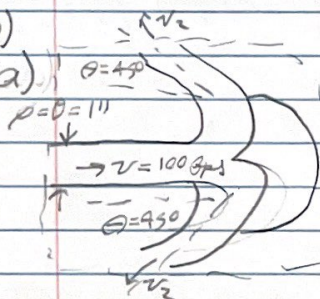 )
v₂
a)
θ=45°
ρ=θ=1"
→ v = 100 fps
θ=45°
v₂